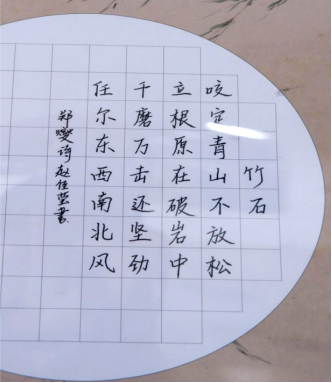 竹石
咬定青山不放松
立根原在破岩中
千磨万击还坚劲
任尔东西南北风
郑燮诗赵佳书